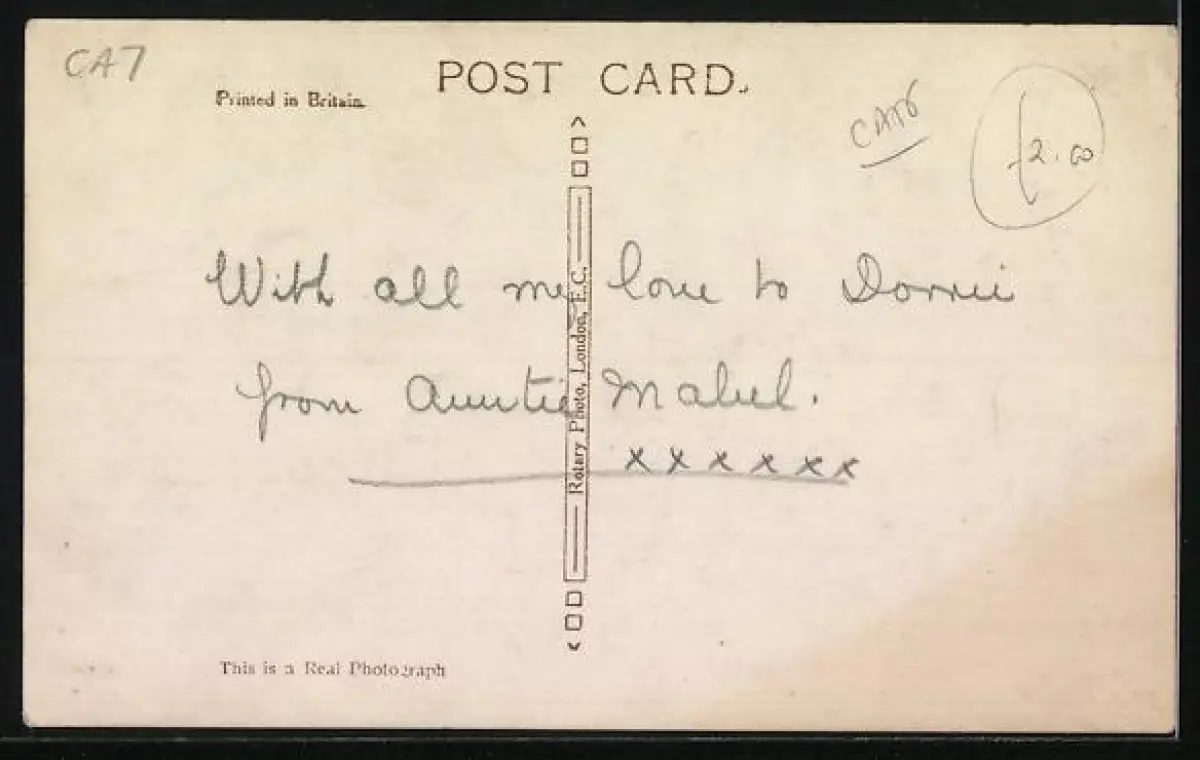 CA7
POST CARD.
Printed in Britain.
CATS
£2.00
With all my love to Dorrie
from Auntie Mabel.
xxxxxx
Rotary Photo, London, E.C.
This is a Real Photograph